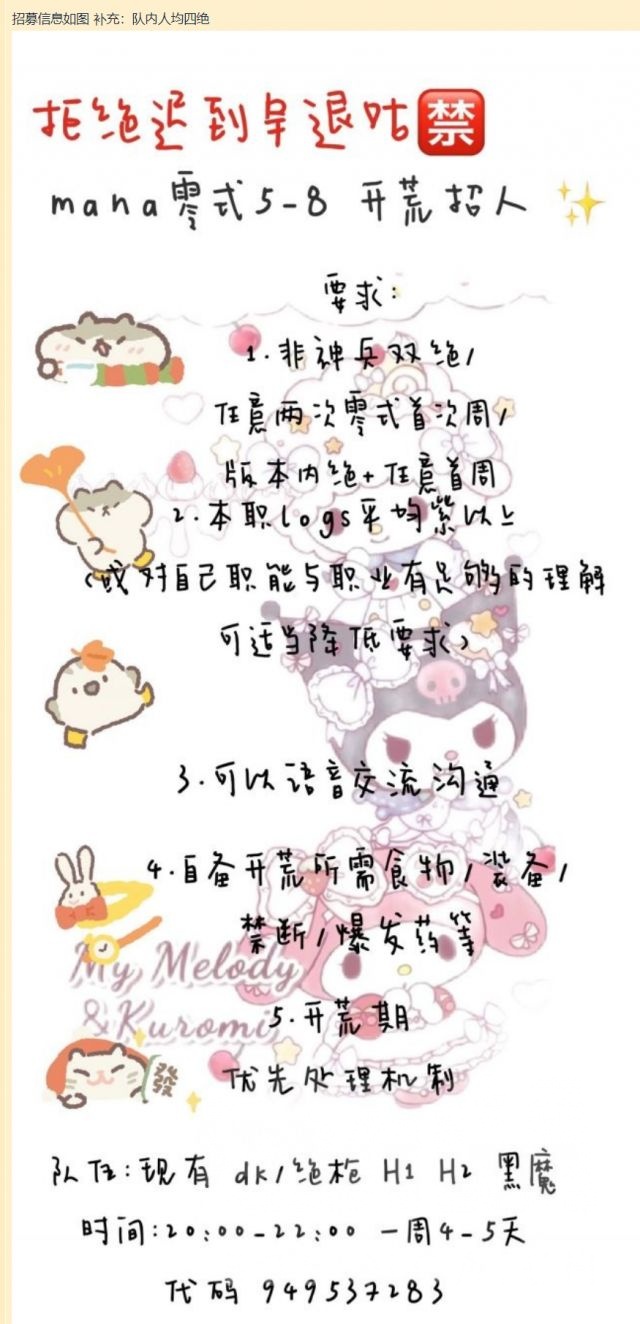 招募信息如图 补充：队内人均四绝
拒绝迟到早退咕禁
mana零式5-8 开荒招人
要求:
1.非神兵双绝/
任意两次零式首次周/
版本内绝+任意首周
2.本职logs平均紫以上
(或对自己职能与职业有足够的理解
可适当降低要求)
3.可以语音交流沟通
4.自备开荒所需食物/装备/
禁断/爆发药等
My Melody
&Kuromi
5.开荒期
發
优先处理机制
队伍:现有 dk/绝枪 H1 H2 黑魔
时间:20:00-22:00 一周4-5天
代码 949537283